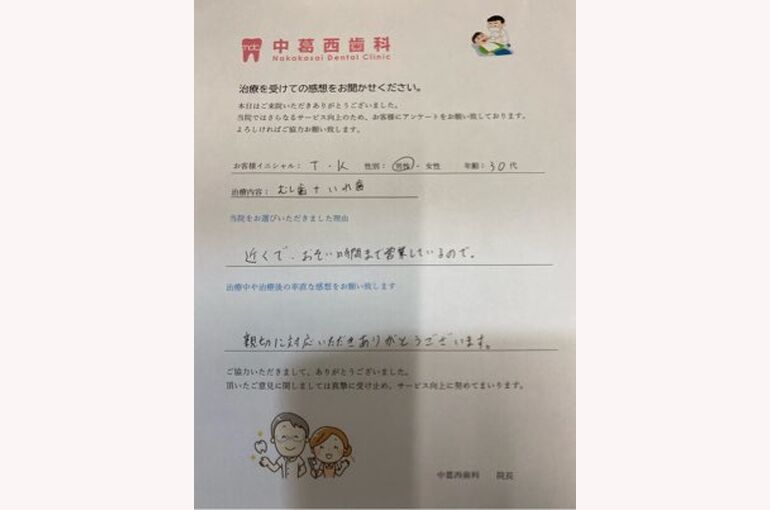 ndc
中葛西歯科
Nakakasai Dental Clinic
治療を受けての感想をお聞かせください。
本日はご来院いただきありがとうございました。
当院ではさらなるサービス向上のため、お客様にアンケートをお願い致しております。
よろしければご協力お願い致します。
お客様イニシャル： T . K 性別： 男性 ・ 女性 年齢： 30 代
治療内容： むし歯 + いれ歯
当院をお選びいただきました理由
近くで、おそい時間まで営業しているので。
治療中や治療後の率直な感想をお願い致します
親切に対応いただきありがとうございます。
ご協力いただきまして、ありがとうございました。
頂いたご意見に関しましては真摯に受け止め、サービス向上に努めてまいります。
中葛西歯科 院長